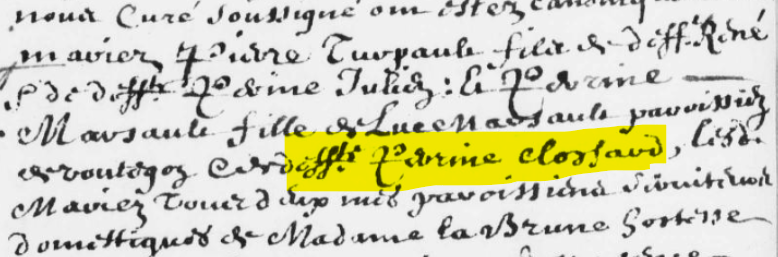 nous Curé soussigné ont estez
mariez Pierre Turpault filz de deff. René
& de deffte Perrine Juliez : & Perrine
Marsault fille de Luc Marsault paroissiez
de & de deffte Perrine Clossard, lesd.
Mariez tous deux mes paroissiens serviteurs
domestiques de Madame la Brune hostesse